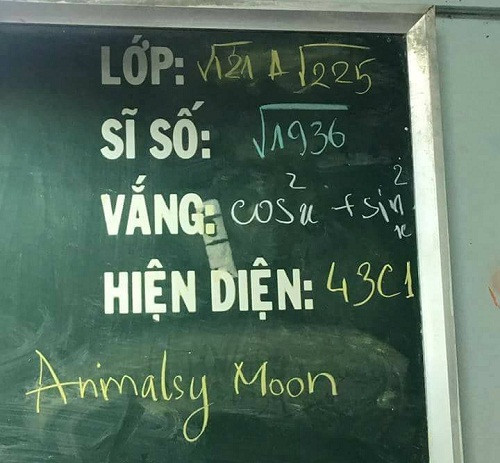 LỚP: √121 A √225
SĨ SỐ: √1936
VẮNG: cos²x + sin²x
HIỆN DIỆN: 43C1
Animalsy Moon